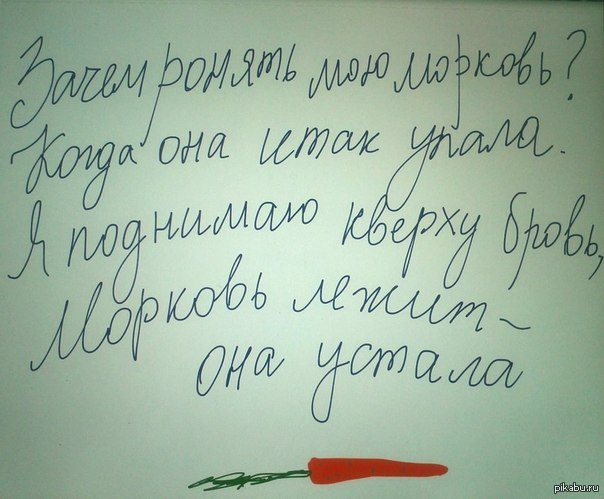 Зачем ронять мою морковь?
Когда она итак упала.
Я поднимаю кверху бровь,
Морковь лежит ~
она устала
pikabu.ru